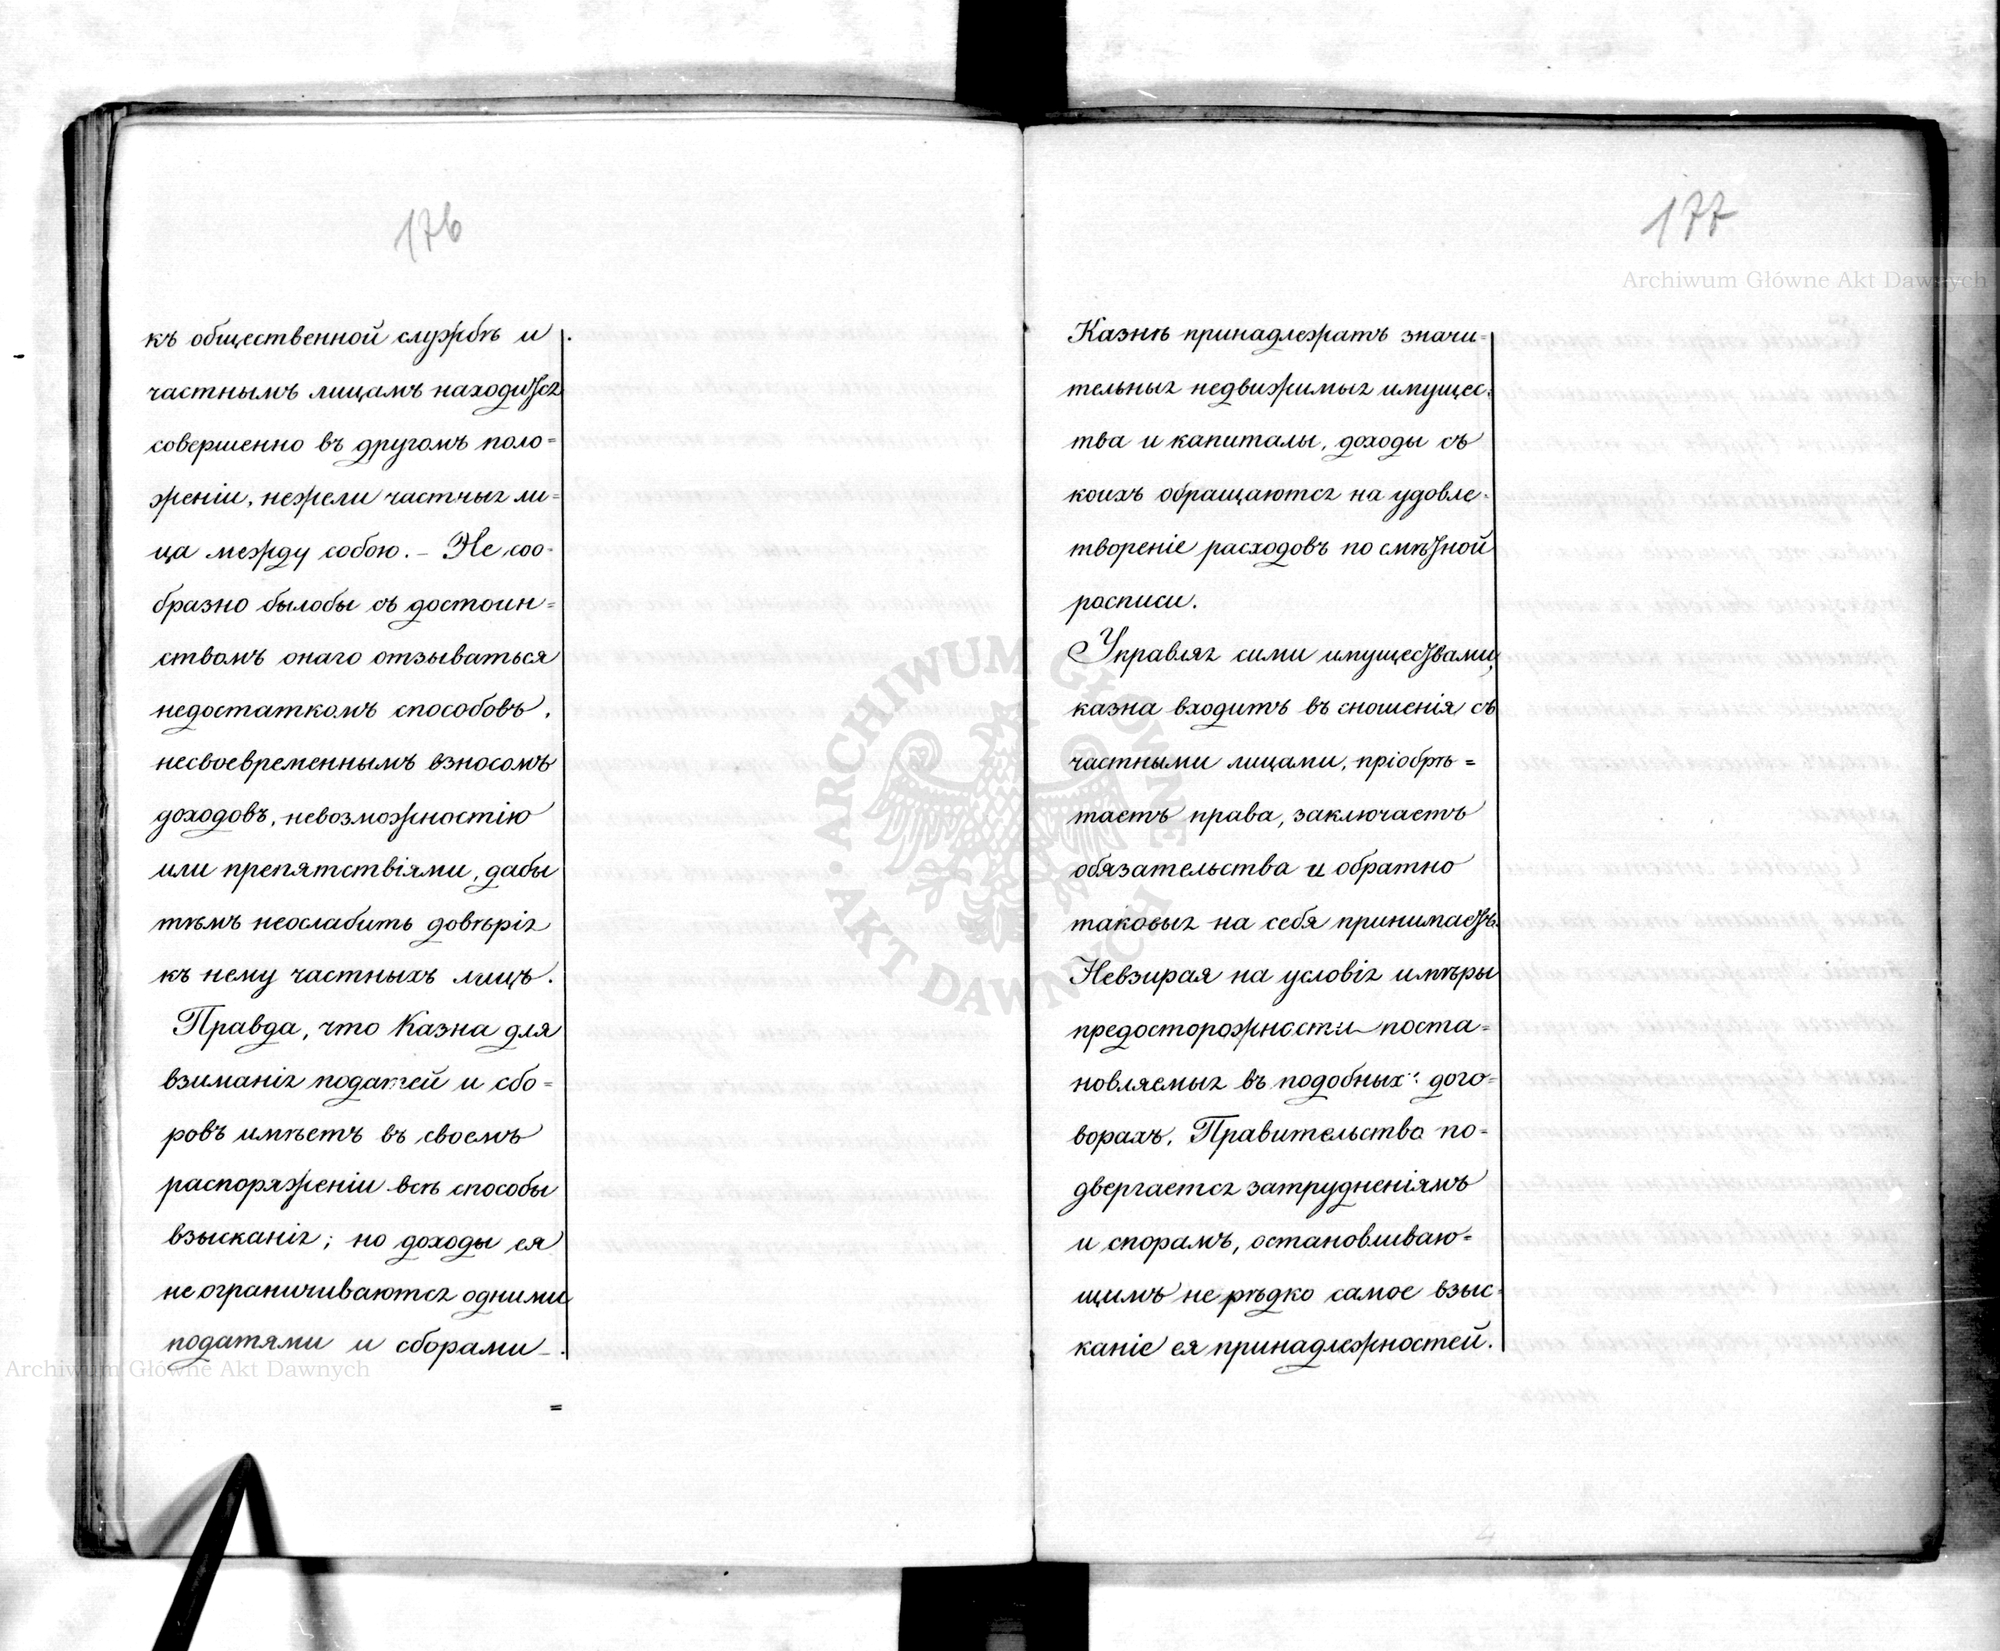 176
къ общественной службѣ и
частнымъ лицамъ находится
совершенно въ другомъ поло=
женіи, нежели частныя ли=
ца между собою. – Не соо=
бразно былобы съ достоин=
ствомъ онаго отзываться
недостаткомъ способовъ,
несвоевременнымъ взносомъ
доходовъ, невозможностію
или препятствіями, дабы
тѣмъ неослабить довѣрія
къ нему частныхъ лицъ.
Правда, что Казна для
взиманія податей и сбо=
ровъ имѣетъ въ своемъ
распоряженіи всѣ способы
взысканія; но доходы ея
не ограничиваются одними
податями и сборами –.
=
177
Казнѣ принадлежатъ значи=
тельныя недвижимыя имущес=
тва и капиталы, доходы съ
коихъ обращаются на удовле=
твореніе расходовъ по смѣтной
росписи.
Управляя сими имуществами,
казна входитъ въ сношенія съ
частными лицами, пріобрѣ=
таетъ права, заключаетъ
обязательства и обратно
таковыя на себя принимаетъ.
Невзирая на условія имѣры
предосторожности поста=
новляемыя въ подобныхъ дого=
ворахъ, Правительство по=
двергается затрудненіямъ
и спорамъ, остановливаю=
щимъ не рѣдко самое взыс=
каніе ея принадлежностей.
Archiwum Główne Akt Dawnych
Archiwum Główne Akt Dawnych
ARCHIWUM GŁÓWNE AKT DAWNYCH